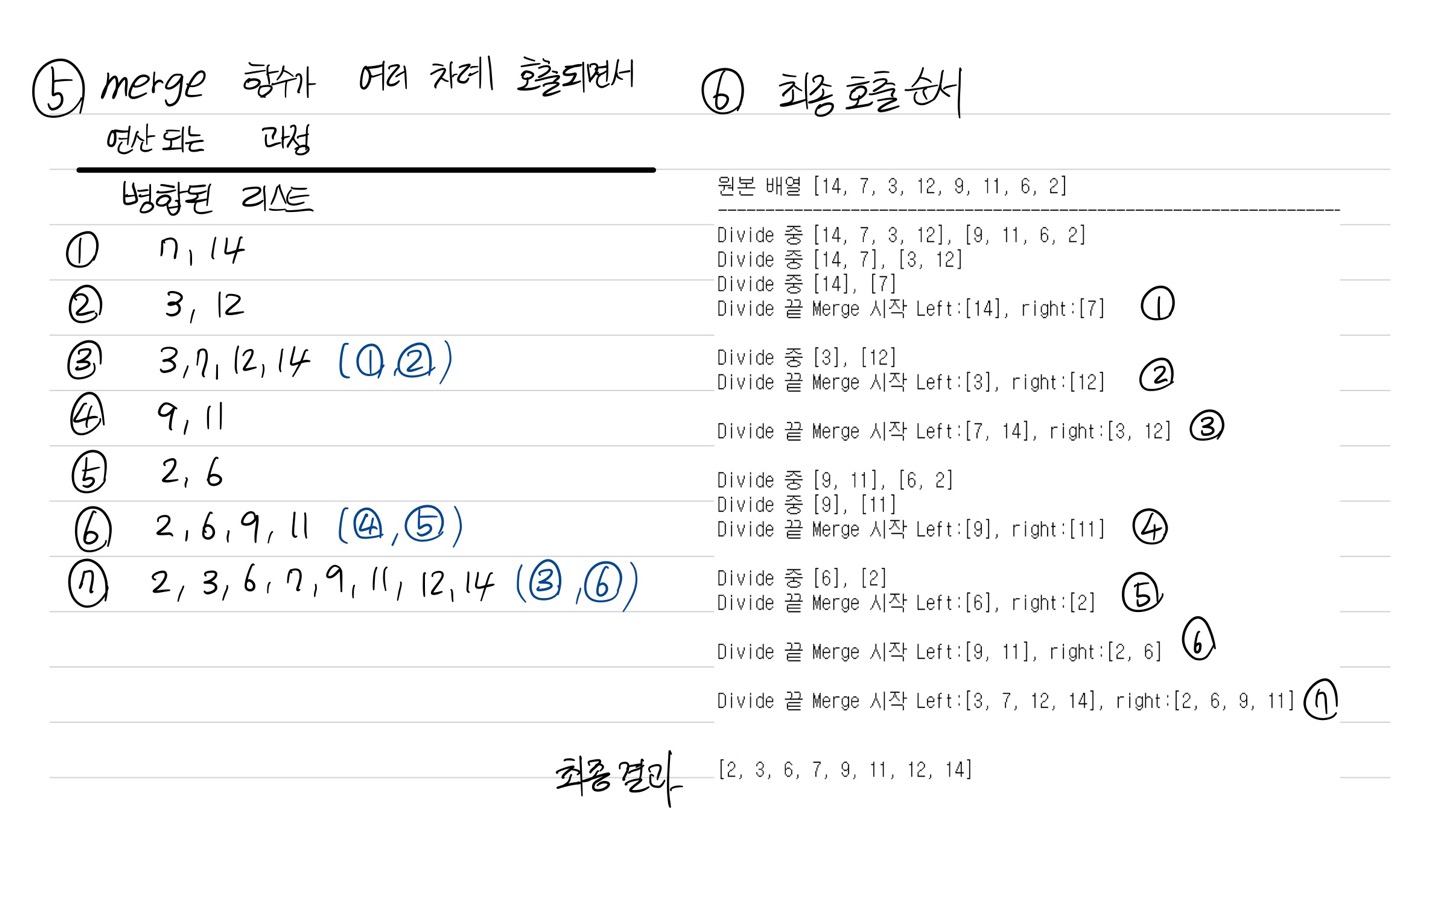 ⑤ merge 함수가 여러 차례 호출되면서
연산 되는 과정
병합된 리스트
① 7, 14
② 3, 12
③ 3, 7, 12, 14 (①,②)
④ 9, 11
⑤ 2, 6
⑥ 2, 6, 9, 11 (④,⑤)
⑦ 2, 3, 6, 7, 9, 11, 12, 14 (③,⑥)
⑥ 최종 호출 순서
원본 배열 [14, 7, 3, 12, 9, 11, 6, 2]
Divide 중 [14, 7, 3, 12], [9, 11, 6, 2]
Divide 중 [14, 7], [3, 12]
Divide 중 [14], [7]
Divide 끝 Merge 시작 Left:[14], right:[7] ①
Divide 중 [3], [12]
Divide 끝 Merge 시작 Left:[3], right:[12] ②
Divide 끝 Merge 시작 Left:[7, 14], right:[3, 12] ③
Divide 중 [9, 11], [6, 2]
Divide 중 [9], [11]
Divide 끝 Merge 시작 Left:[9], right:[11] ④
Divide 중 [6], [2]
Divide 끝 Merge 시작 Left:[6], right:[2] ⑤
Divide 끝 Merge 시작 Left:[9, 11], right:[2, 6] ⑥
Divide 끝 Merge 시작 Left:[3, 7, 12, 14], right:[2, 6, 9, 11] ⑦
최종결과 [2, 3, 6, 7, 9, 11, 12, 14]